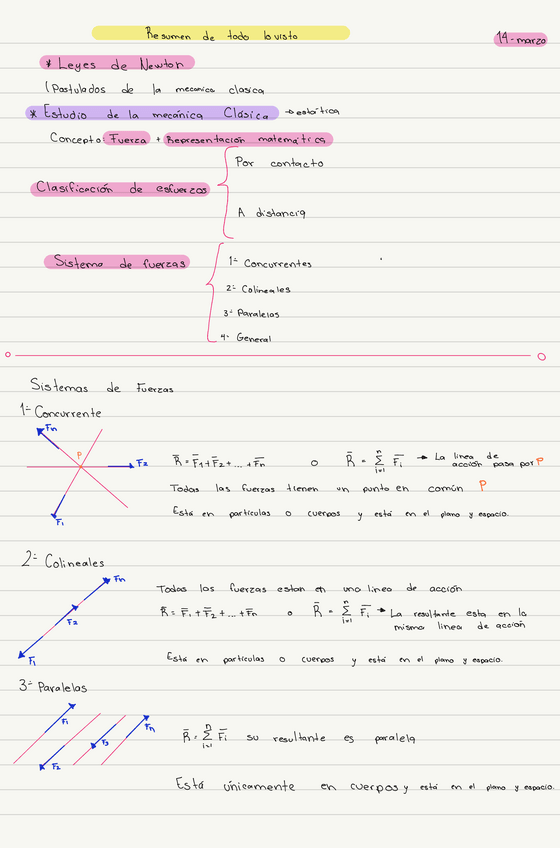 Resumen de todo lo visto
14-marzo
* Leyes de Newton
(Postulados de la mecanica clasica
* Estudio de la mecánica Clásica → estática
Concepto: Fuerza + Representación matemática
Clasificación de esfuerzos
Por contacto
A distancia
Sistema de fuerzas
1- Concurrentes
2- Colineales
3- Paralelas
4- General
Sistemas de Fuerzas
1- Concurrente
Fn
P
F2
F1
R̄ = F̄1 + F̄2 + ... + F̄n o R̄ = Σ F̄i → La linea de
n
i=1
acción pasa por P
Todas las fuerzas tienen un punto en común P
Está en partículas o cuerpos y está en el plano y espacio.
2- Colineales
Fn
F2
F1
Todas las fuerzas estan en una linea de acción
R̄ = F̄1 + F̄2 + ... + F̄n o R̄ = Σ F̄i → La resultante esta en la
n
i=1
misma linea de acción
Está en partículas o cuerpos y está en el plano y espacio.
3- Paralelas
F1
F2
F3
Fn
R̄ = Σ F̄i su resultante es paralela
n
i=1
Está únicamente en cuerpos y está en el plano y espacio.